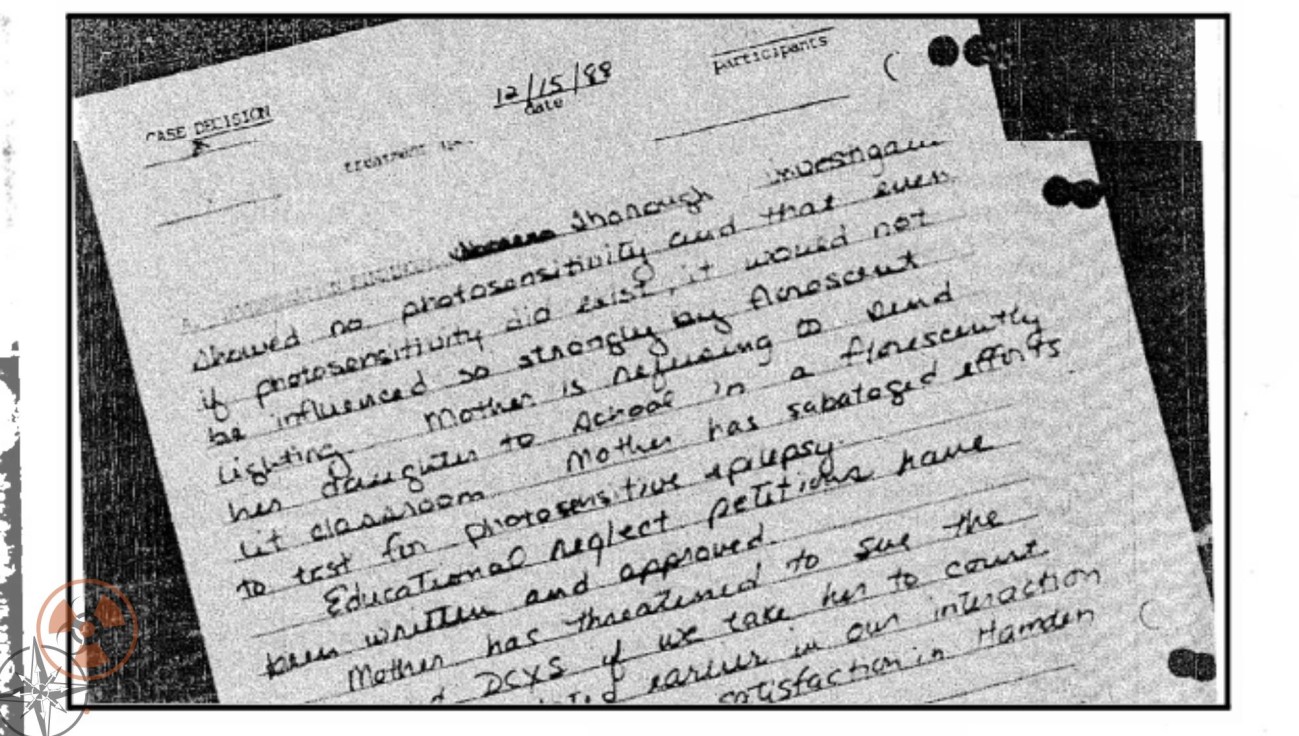 12/15/88
participants
date
CASE DECISION
thorough
showed no photosensitivity and that even
if photosensitivity did exist, it would not
be influenced so strongly by florescent
lighting. Mother is refusing to send
her daughter to school in a florescently
lit classroom. Mother has sabatoged efforts
to test for photosensitive epilepsy.
Educational neglect petitions have
been written and approved.
Mother has threatened to sue the
DCYS if we take her to court.
earlier in our interaction
satisfaction in Hamden